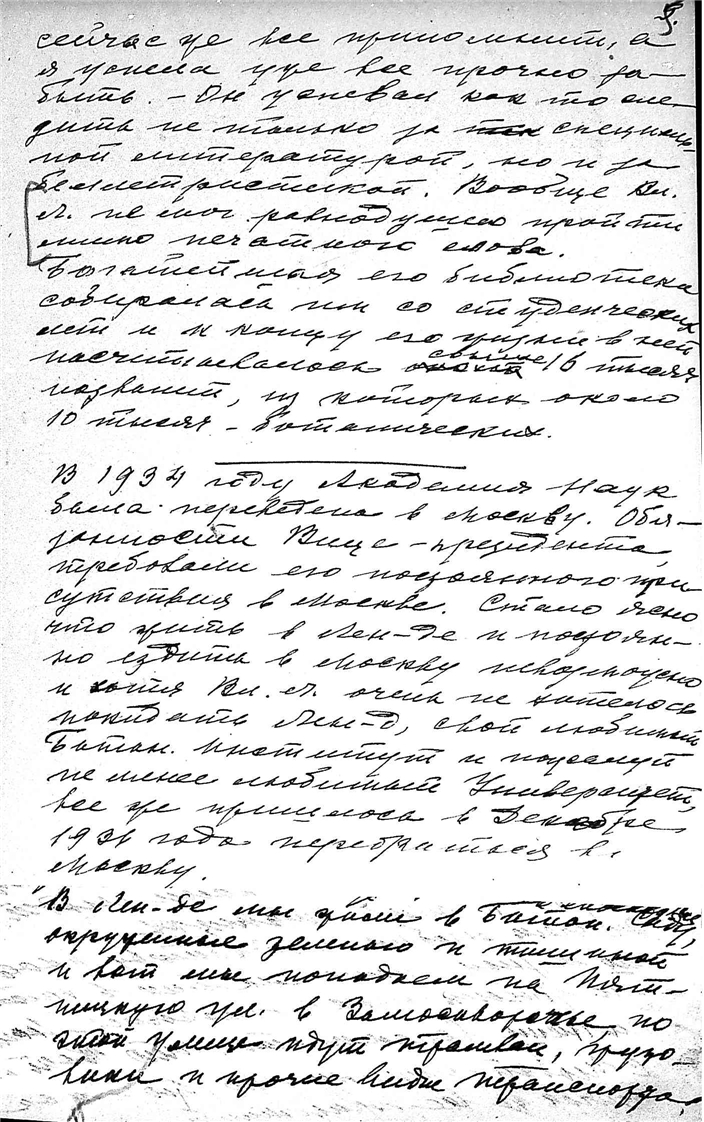 сейчас же все припомнит, а
я успела уже все прочно за-
быть. - Он успевал как то сле-
дить не только за специаль-
ной литературой, но и за
беллетристикой. Вообще Вл.
Л. не мог равнодушно пройти
мимо печатного слова.
Богатейшая его библиотека
собиралась им со студенческих
лет и к концу его жизни в ней
насчитывалось свыше 16 тысяч
названий, из которых около
10 тысяч - ботанических.
В 1934 году Академия Наук
была переведена в Москву. Обя-
занности Вице-президента
требовали его постоянного при-
сутствия в Москве. Стало ясно
что жить в Лен-де и постоян-
но ездить в Москву невозможно
и хотя Вл. Л. очень не хотелось
покидать Лен-д, свой любимый
Ботан. Институт и пожалуй
не менее любимый Университет,
все же пришлось в Декабре
1936 года перебраться в
Москву.
В Лен-де мы жили в Ботан. Саду,
окруженные зеленью и тишиной
и вот мы попадаем на Пят-
ницкую ул. в Замоскворечье, по
этой улице идут трамваи, грузо-
вики и прочие виды транспорта.